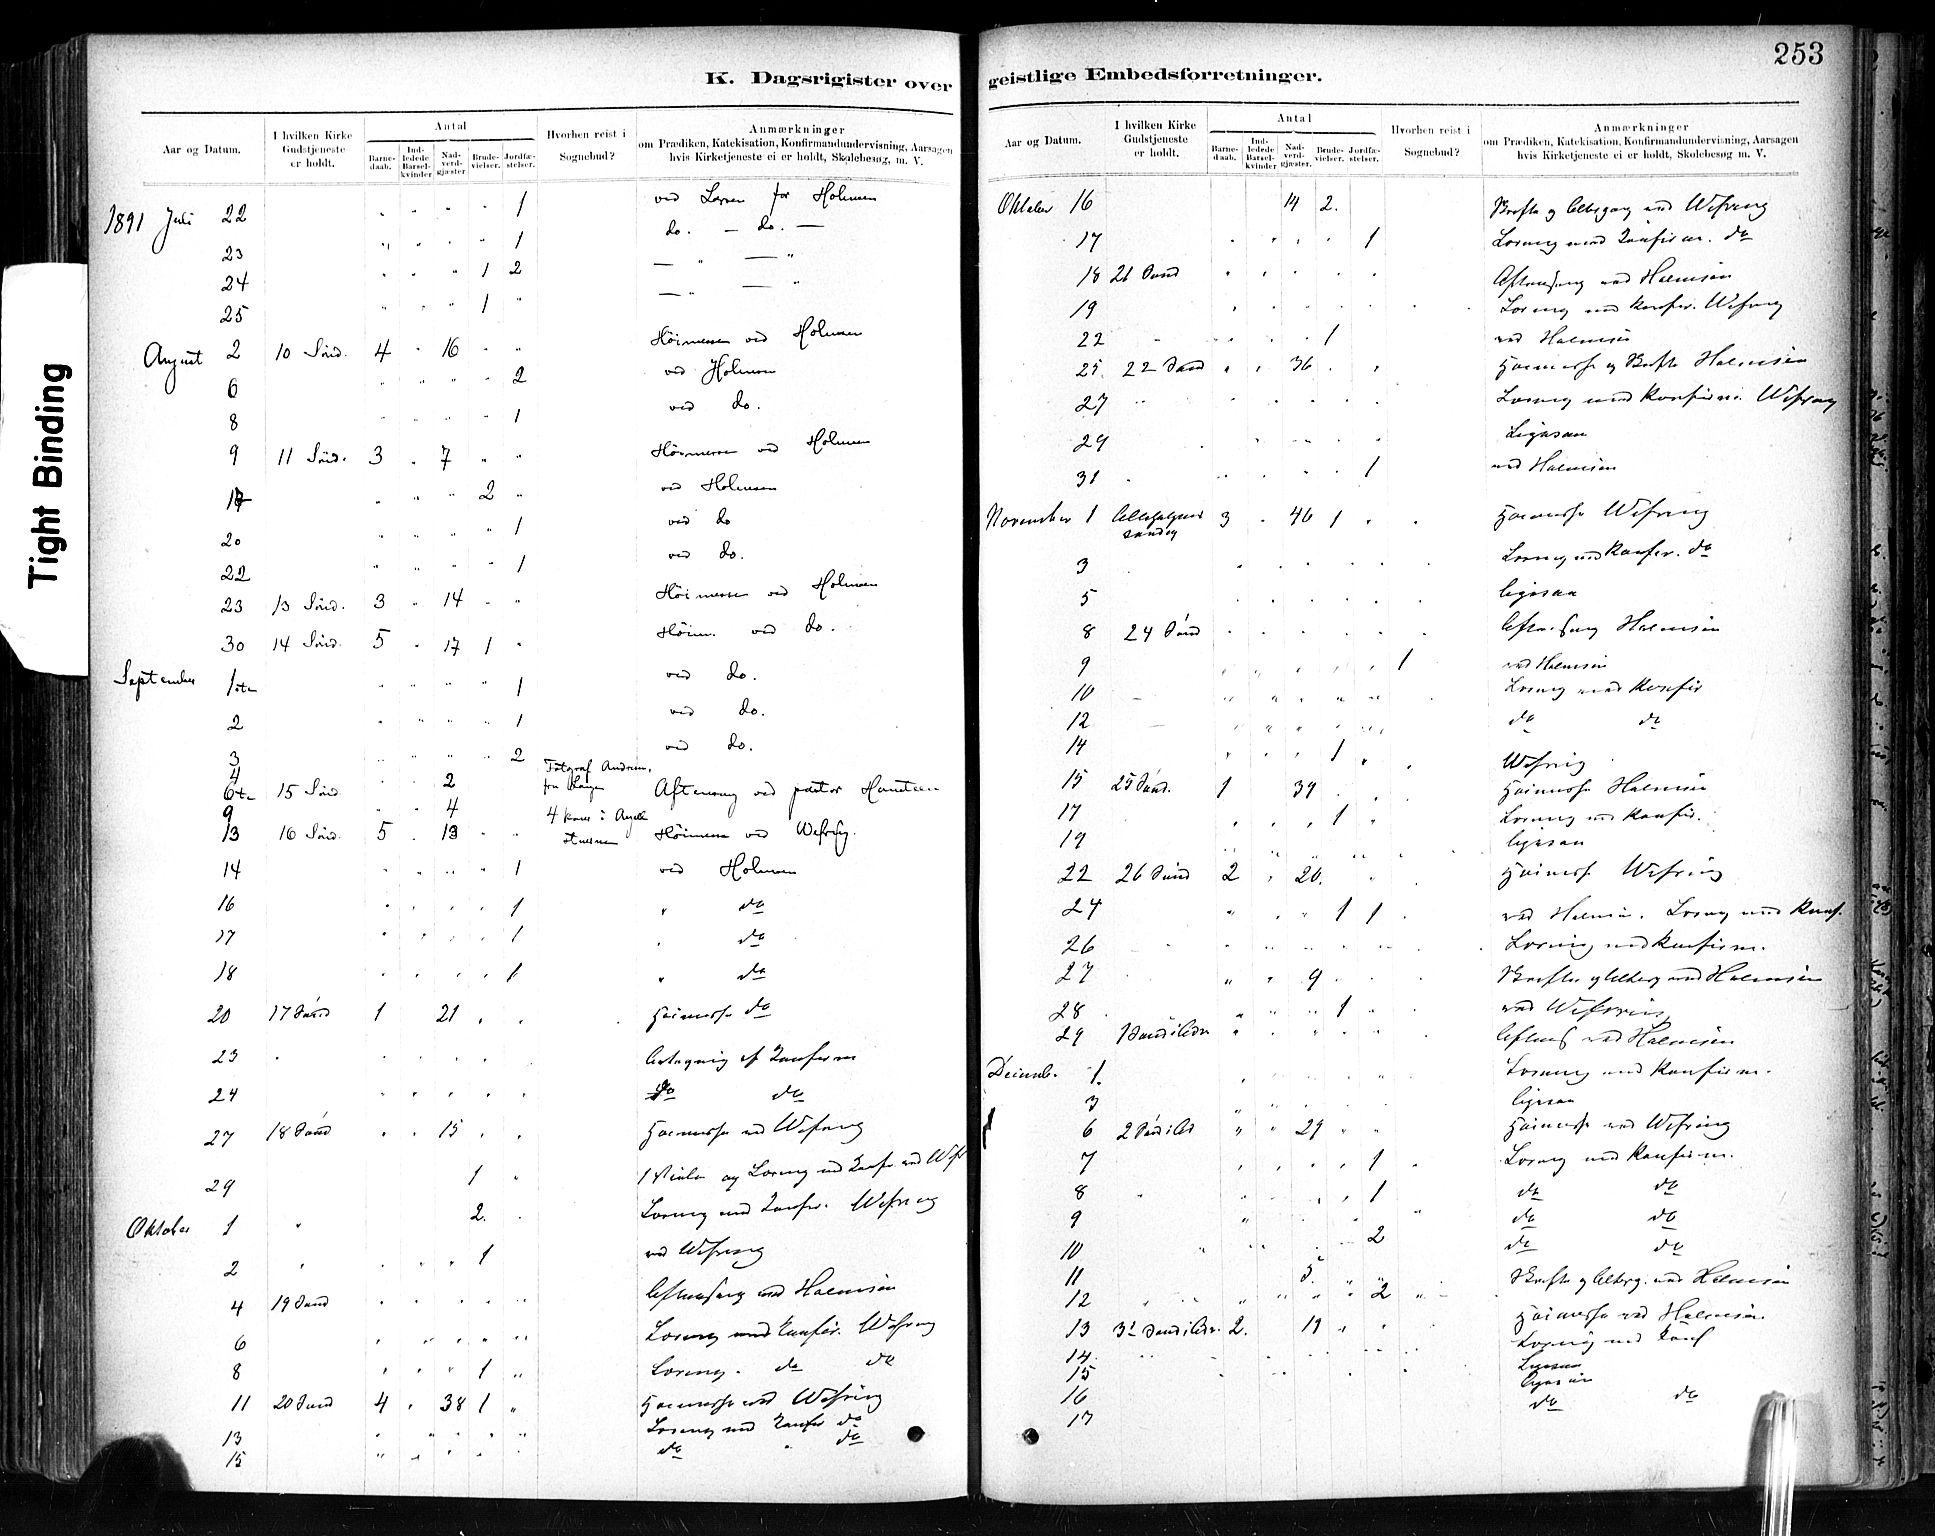 253
K. Dagsrigister over geistlige Embedsforretninger.
Tight Binding
Aar og Datum.
I hvilken Kirke Gudstjeneste er holdt.
Antal
Barne-daab.
Ind-ledede Barsel-kvinder
Nad-verd-gjæster.
Brude-vielser.
Jordfæ-stelser.
Hvorhen reist i Sognebud?
Anmærkninger
om Prædiken, Katekisation, Konfirmandundervisning, Aarsagen
hvis Kirketjeneste ei er holdt, Skolebesøg, m. V.
1891 Juli 22 1 ved Larsen for Holmsen
23 1 do. — do. —
24 1 2 — " — "
25 1 " — " — "
August 2 10 Sönd. 4 16 Höimesse ved Holmsen
6 2 ved Holmsen
8 1 ved do.
9 11 Sönd. 3 7 Höimesse ved Holmsen
2 ved Holmsen
20 1 ved do
22 1 ved do.
23 13 Sönd. 3 14 Höimesse ved Holmsen
30 14 Sönd. 5 17 1 Höim. ved do.
September 1ste 1 ved do.
2 1 ved do.
3 2 ved do.
4 2 Fotograf
6te 15 Sönd Aftensang ved pastor
9 4 4
13 16 Sönd. 5 13 Höimesse ved Wefring.
14 1 ved Holmsen
16 1 " do
17 1 " do
18 1 " do
20 17 Sönd 1 21 Höimesse do
23 af Konfirm
24 do do
27 18 Sönd 15 Höimesse ved Wefring
29 1 1 Vielse og Læsning med Konfir ved Wefr
Oktober 1 2. Læsning med Konfir. Wefring
2 1 ved Wefring
4 19 Sönd Aftensang ved Holmsen
6 Læsning med Konfir. Wefring
8 1 Læsning. do do
11 20 Sönd 4 38 1 Höimesse ved Wefring
13 Læsning med Konfir do
15 do " do
Aar og Datum.
I hvilken Kirke Gudstjeneste er holdt.
Antal
Barne-daab.
Ind-ledede Barsel-kvinder
Nad-verd-gjæster.
Brude-vielser.
Jordfæ-stelser.
Hvorhen reist i Sognebud?
Anmærkninger
om Prædiken, Katekisation, Konfirmandundervisning, Aarsagen
hvis Kirketjeneste ei er holdt, Skolebesøg m. V.
Oktober 16 14 2. Skrifte og Altergang ved Wefring
17 1 Læsning med Konfirm. do
18 21 Sönd Aftensang ved Holmsen
19 Læsning med Konfir. Wefring
22 1 ved Holmsen
25. 22 Sönd 36 Höimesse og Skrifte Holmsen
27 Læsning med Konfirm. Wefring
29 Ligesaa
31 1 ved Holmsen
November 1 Allehelgens söndag 3 46 1 Höimesse Wefring
3 Læsning med Konfir. do
5 ligesaa
8 24 Sönd Aftensang Holmsen
9 1 ved Holmsen
10 Læsning med Konfir
12 do do
14 1 Wefring
15 25 Sönd. 1 39 Höimesse Holmsen
17 1 Læsning med Konfir.
19 ligesaa
22 26 Sönd 2 20. Höimesse Wefring
24 1 1 ved Holmsen. Læsning med Konf.
26 Læsning med Konfirm.
27 9 Skrifte og Alterg ved Holmsen
28 1 ved Wefring
29 1 Sönd i Adv Aftens ved Holmsen
Decemb. 1. Læsning med Konfirm.
3 ligesaa
6 2 Sönd i Ad 29 Höimesse ved Wefring
7 1 Læsning med Konfirm.
8 1 do do
9 do do
10 2 do do
11 5. Skrifte og Alterg. ved Holmsen
12 2
13 3die Sönd i Adv. 2. 19 Höimesse ved Holmsen
14 Læsning med Konf
15 Ligesaa
16 ligesaa
17 do do